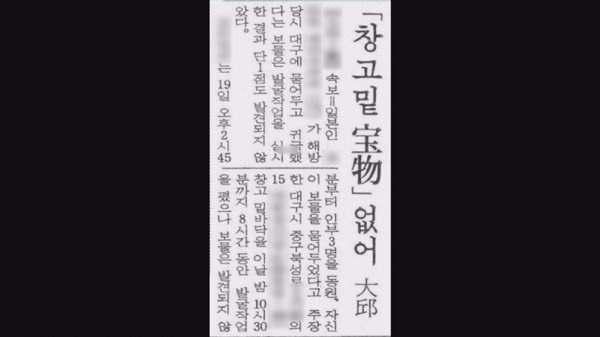 「창고밑 宝物」없어 大邱
속보=일본인
가 해방
당시 대구에 묻어두고 귀국했
다는 보물은 발굴작업을 실시
한 결과 단1점도 발견되지 않
았다.
는 19일 오후2시45
분부터 인부3명을 동원, 자신
이 보물을 묻어두었다고 주장
한 대구시 중구북성로 의
15
창고 밑바닥을 이날 밤 10시30
분까지 8시간 동안 발굴작업
을 폈으나 보물은 발견되지 않